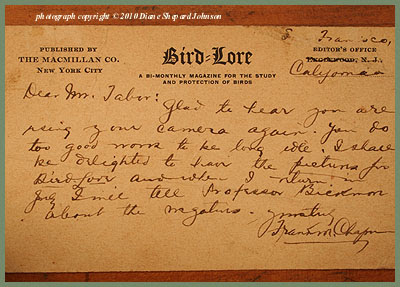 photograph copyright © 2010 Diane Shapard Johnson
S. Francisco,
PUBLISHED BY
THE MACMILLAN CO.
NEW YORK CITY
Bird-Lore
A BI-MONTHLY MAGAZINE FOR THE STUDY
AND PROTECTION OF BIRDS
EDITOR'S OFFICE
ENGLEWOOD, N. J.
California
Dear Mr. Tabor:
Glad to hear you are
using your camera again. You do
too good work to be long idle. I shall
be delighted to have the pictures for
Bird-Lore and when I return
I'll tell Professor Bickmore
about the negatives.
Frank M. Chapman